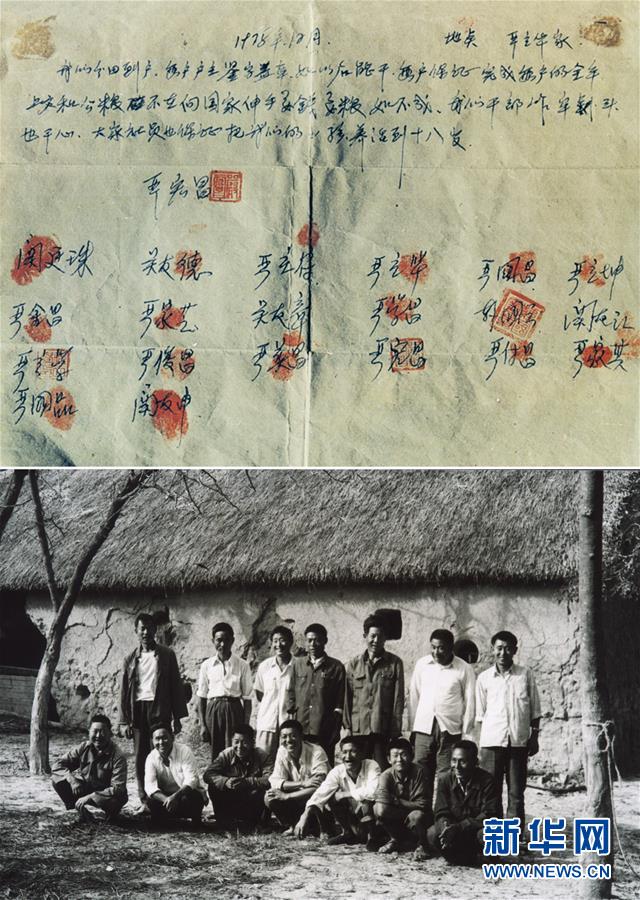 1978年12月. 地点 严立华家.
我们分田到户. 每户户主签字盖章. 如以后能干. 每户保证完成每户的全年
上交和公粮. 不在向国家伸手要钱要粮. 如不成. 我们干部作牢刹头
也干心. 大家社员也保证把我们的小孩养活到十八岁.
严宏昌
关廷珠 关友德 严立符 严立华 严国昌 严立坤
严金昌 严家芝 关友章 严学昌 韩国云 关友江
严立学 严俊昌 严美昌 严宏昌 严付昌 严家其
严国品 关友申
新华网
WWW.NEWS.CN